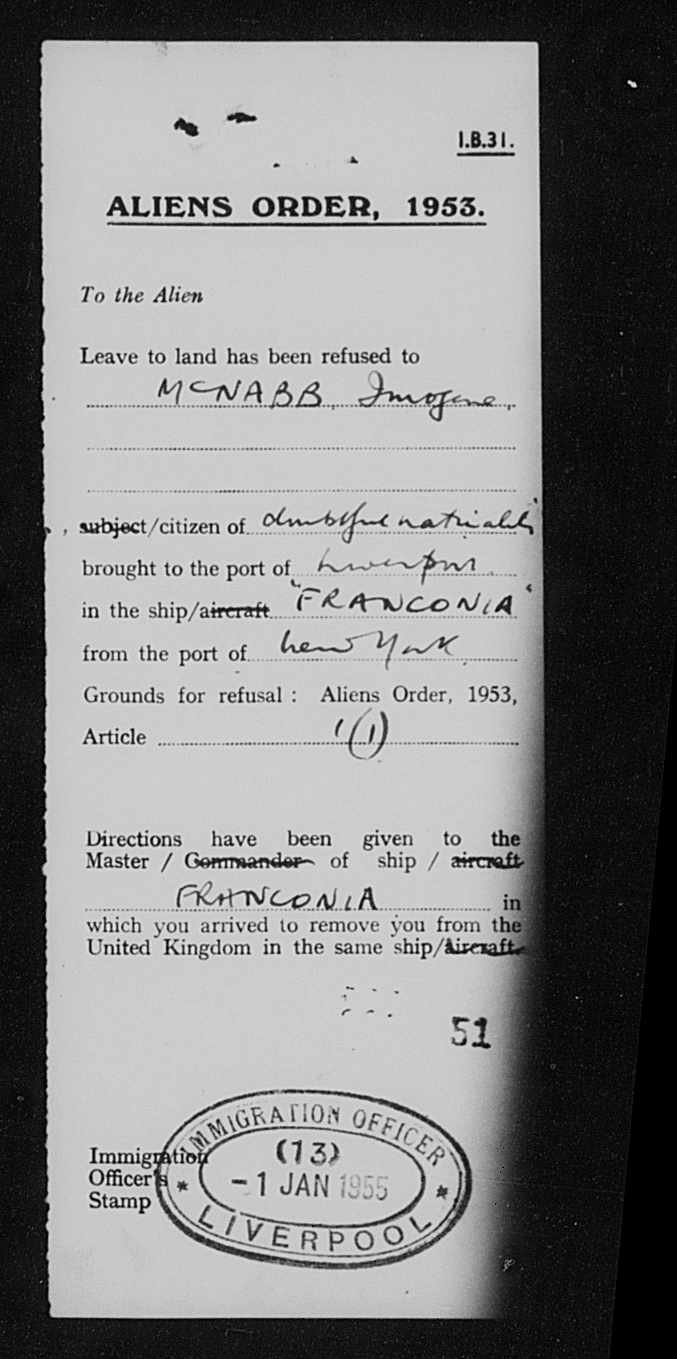 I.B.31.
ALIENS ORDER, 1953.
To the Alien
Leave to land has been refused to
MCNABB, Imogene,
, subject/citizen of doubtful nationality
brought to the port of Liverpool
in the ship/aircraft "FRANCONIA"
from the port of New York
Grounds for refusal : Aliens Order, 1953,
Article 1(1)
Directions have been given to the
Master / Commander of ship / aircraft
FRANCONIA in
which you arrived to remove you from the
United Kingdom in the same ship/Aircraft
51
Immigration
Officer's
Stamp
IMMIGRATION OFFICER
(13)
- 1 JAN 1955
* LIVERPOOL *